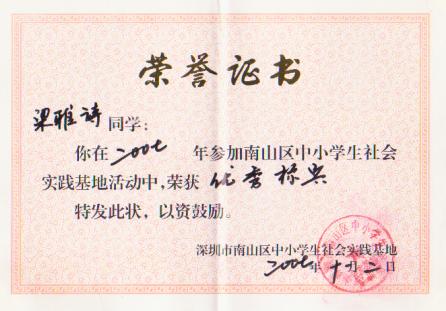 荣誉证书
梁雅诗同学：
你在 年参加南山区中小学生社会
实践基地活动中，荣获 优秀标兵
特发此状，以资鼓励。
深圳市南山区中小学生社会实践基地
年十月二日